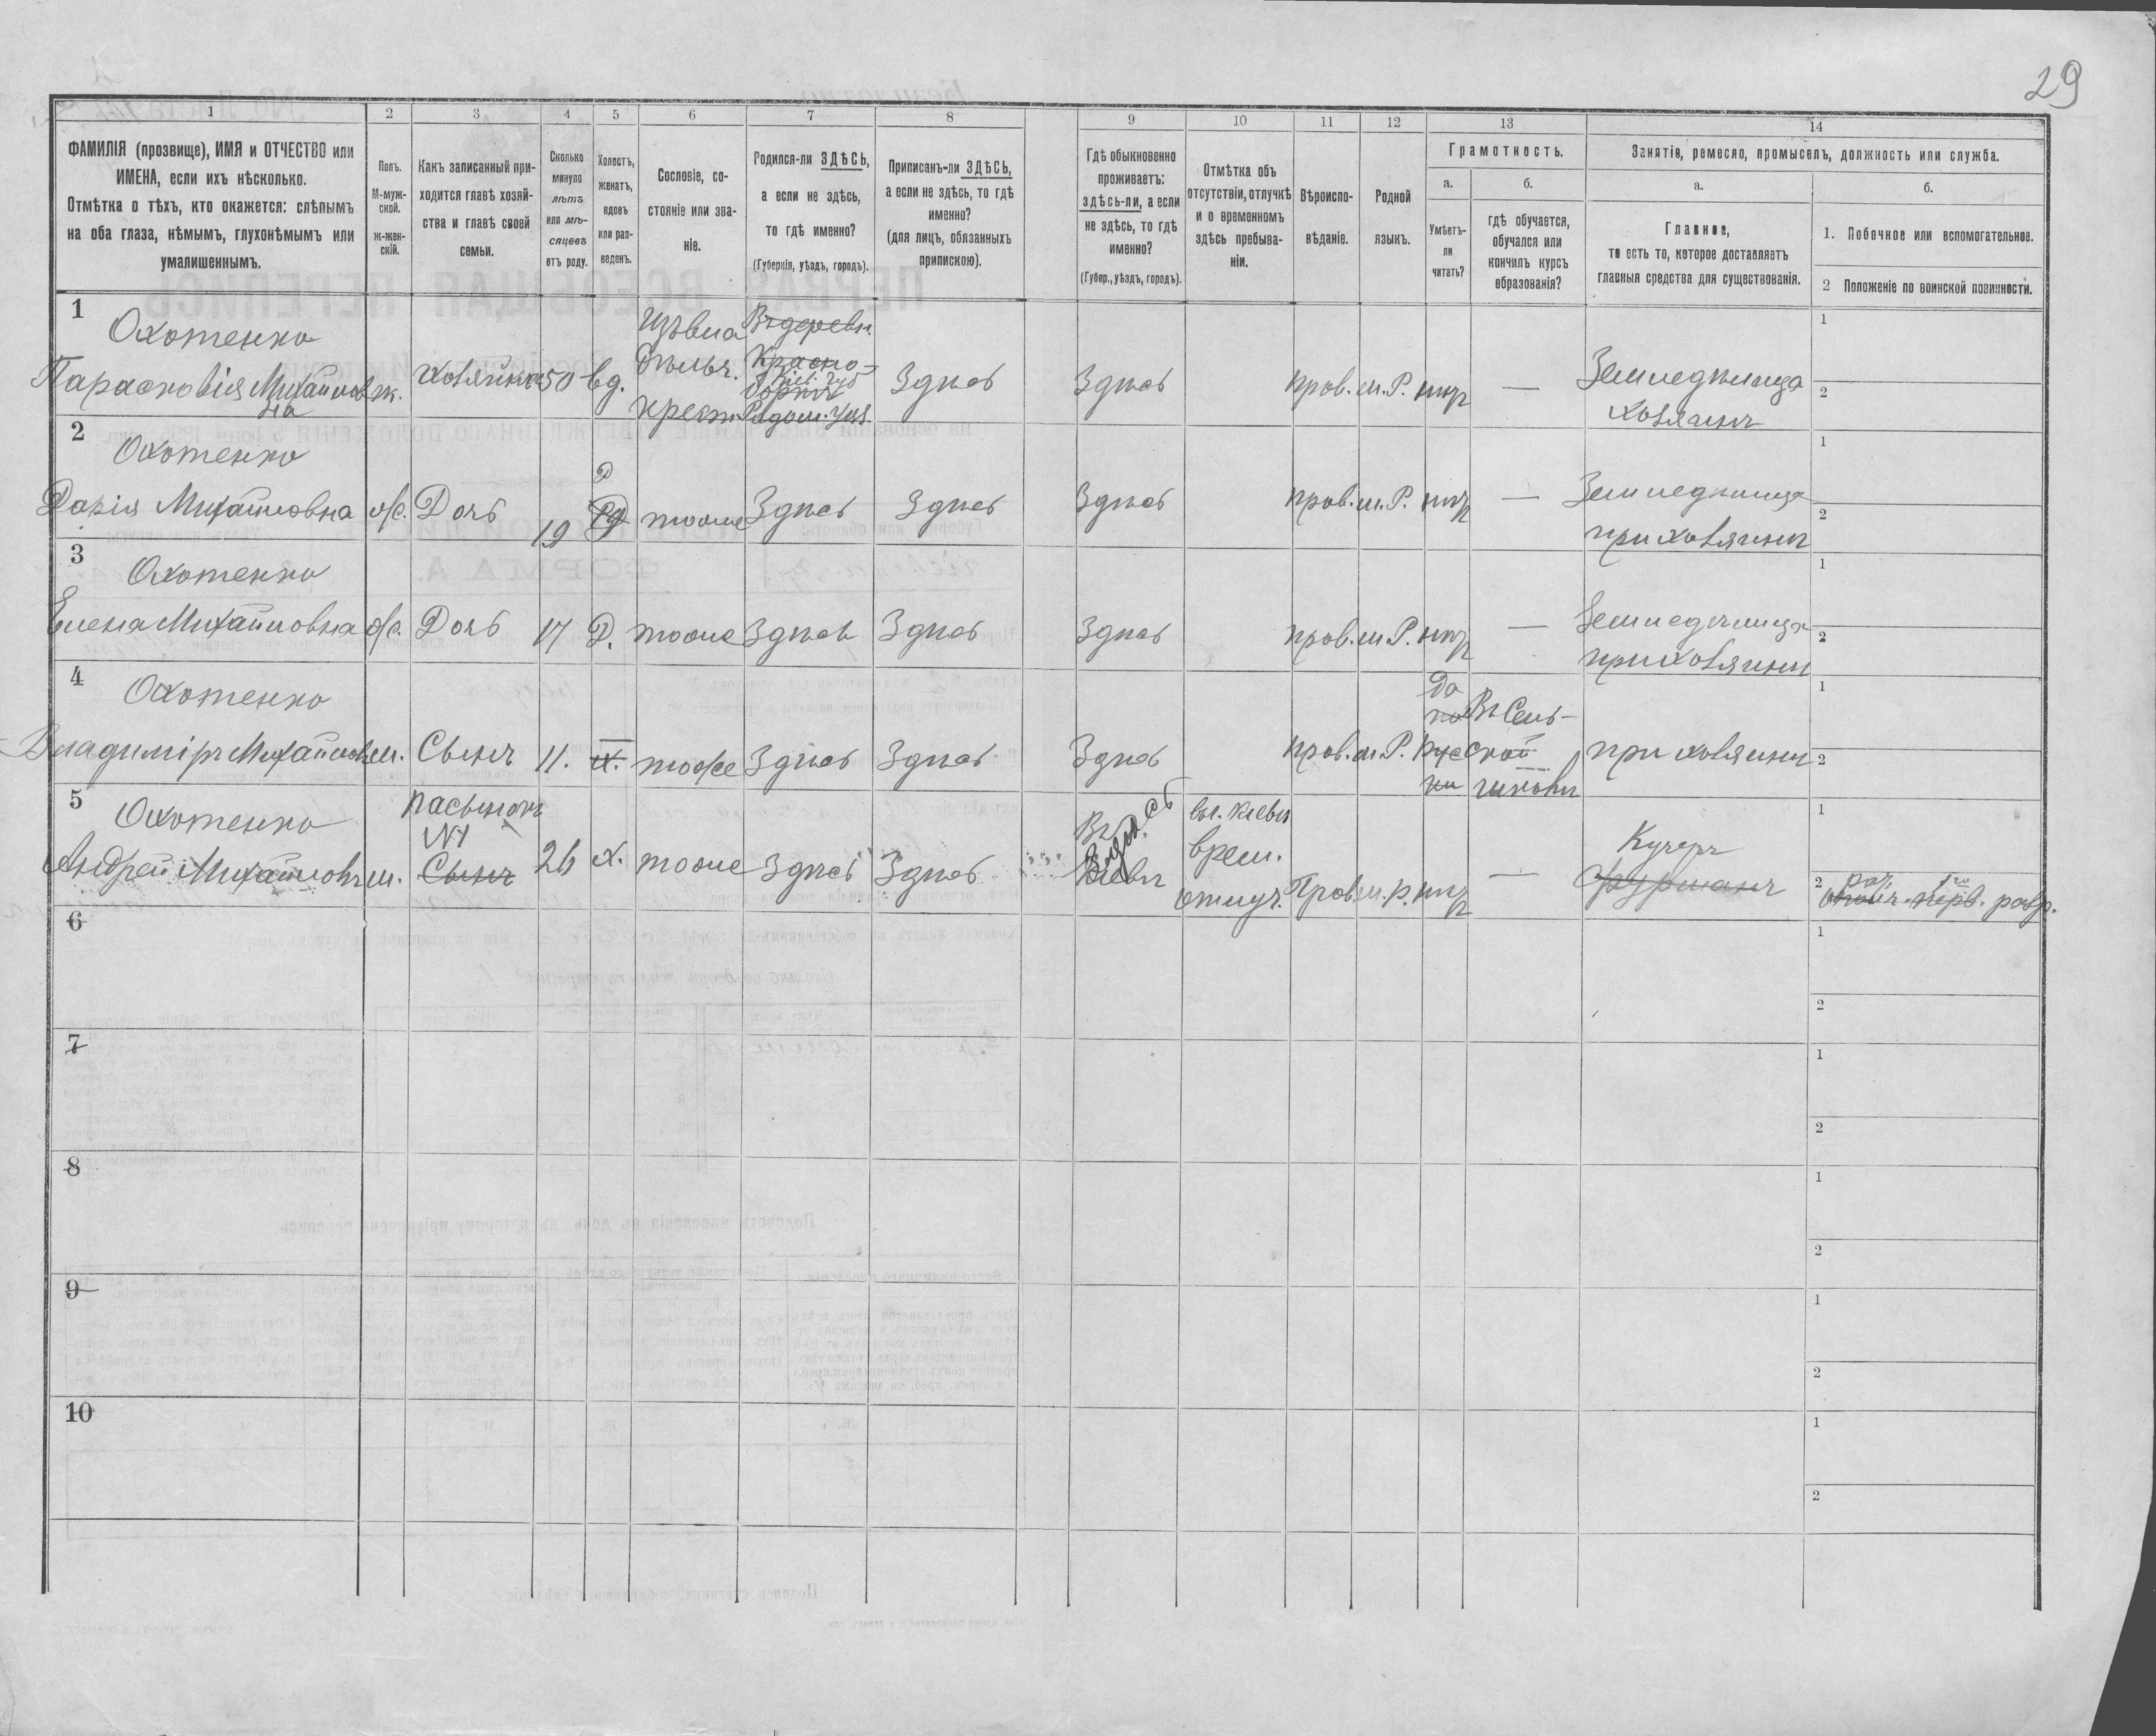 29
1
2
3
4
5
6
7
8
9
10
11
12
13
14
ФАМИЛІЯ (прозвище), ИМЯ и ОТЧЕСТВО или
ИМЕНА, если ихъ нѣсколько.
Отмѣтка о тѣхъ, кто окажется: слѣпымъ
на оба глаза, нѣмымъ, глухонѣмымъ или
умалишеннымъ.
Полъ.
М-муж-
ской.
Ж-жен-
скій.
Какъ записанный при-
ходится главѣ хозяй-
ства и главѣ своей
семьи.
Сколько
минуло
лѣтъ
или мѣ-
сяцевъ
отъ роду.
Холостъ,
женатъ,
вдовъ
или раз-
веденъ.
Сословіе, со-
стояніе или зва-
ніе.
Родился-ли ЗДѢСЬ,
а если не здѣсь,
то гдѣ именно?
(Губернія, уѣздъ, городъ).
Приписанъ-ли ЗДѢСЬ,
а если не здѣсь, то гдѣ
именно?
(для лицъ, обязанныхъ
припискою).
Гдѣ обыкновенно
проживаетъ:
здѣсь-ли, а если
не здѣсь, то гдѣ
именно?
(Губер., уѣздъ, городъ).
Отмѣтка объ
отсутствіи, отлучкѣ
и о временномъ
здѣсь пребыва-
ніи.
Вѣроиспо-
вѣданіе.
Родной
языкъ.
Грамотность.
а.
Умѣетъ-
ли
читать?
б.
гдѣ обучается,
обучался или
кончилъ курсъ
образованія?
Занятія, ремесло, промыселъ, должность или служба.
а.
Главное,
то есть то, которое доставляетъ
главныя средства для существованія.
б.
1. Побочное или вспомогательное.
2 Положеніе по воинской повинности.
1
Охотенко
Парасковія Михайлов
на
ж.
хозяйка
50
вд.
крест.
Въ деревн.
Красно-
Радом. уѣз.
Здѣсь
Здѣсь
прав.
м.Р.
нѣт
—
Земледѣлица
хозяинъ
1
2
2
Охотенко
Дарія Михайловна
ж.
Дочь
19
Д
тоже
Здѣсь
Здѣсь
Здѣсь
прав.
м.Р.
нѣт
—
Земледѣлица
при хозяинѣ
1
2
3
Охотенко
Елена Михайловна
ж.
Дочь
17
Д.
тоже
Здѣсь
Здѣсь
Здѣсь
прав.
м.Р.
нѣт
—
Земледѣлица
при хозяинѣ
1
2
4
Охотенко
Владиміръ Михайлов
м.
Сынъ
11.
х.
тоже
Здѣсь
Здѣсь
Здѣсь
прав.
м.Р.
Да
Въ Сель-
ской
школѣ
при хозяинѣ
1
2
5
Охотенко
Андрей Михайловъ
м.
пасынокъ
№1
Сынъ
26
х.
тоже
Здѣсь
Здѣсь
Въ
Кіевѣ
Здѣсь
въ г. Кіевѣ
врем.
отлуч.
Прав.
м.р.
нѣт
—
Кучеръ
Фурманъ
1
2
разр.
6
1
2
7
1
2
8
1
2
9
1
2
10
1
2